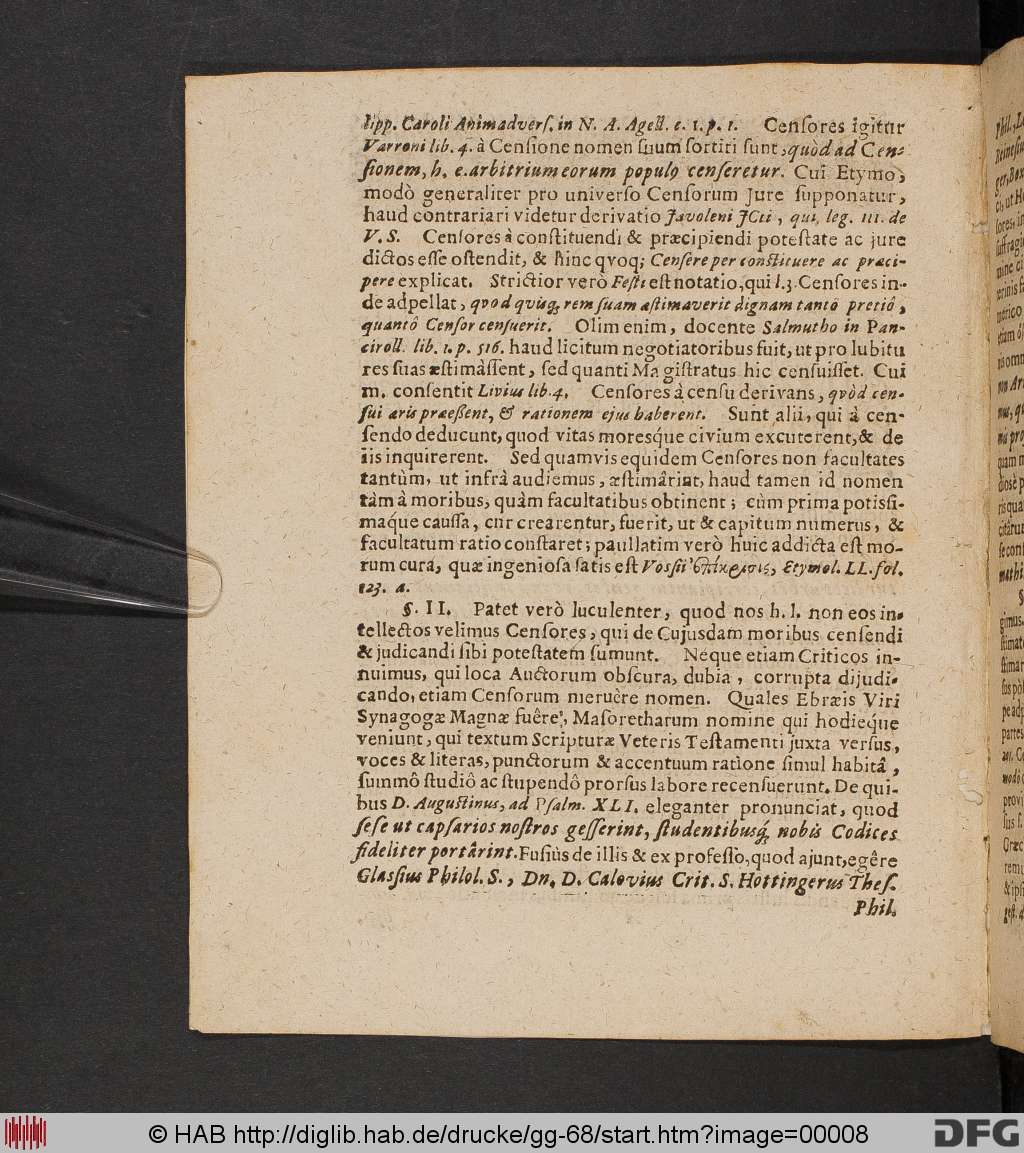 lipp. Caroli Animadverſ. in N. A. Agell. c. 1. p. 1. Cenſores igitur
Varroni lib. 4. à Cenſione nomen ſuum ſortiti ſunt, quòd ad Cen-
ſionem, h. e. arbitrium eorum populꝰ cenſeretur. Cui Etymo,
modò generaliter pro univerſo Cenſorum Jure ſupponatur,
haud contrariari videtur derivatio Javoleni JCti, qui, leg. 111. de
V. S. Cenſores à conſtituendi & præcipiendi poteſtate ac jure
dictos eſſe oſtendit, & hinc qvoq; Cenſere per conſtituere ac præci-
pere explicat. Strictior verò Feſti eſt notatio, qui l. 3. Cenſores in-
de adpellat, qvod qviſq; rem ſuam æſtimaverit dignam tantô pretiô,
quantô Cenſor cenſuerit. Olim enim, docente Salmutho in Pan-
ciroll. lib. 1. p. 516. haud licitum negotiatoribus fuit, ut pro lubitu
res ſuas æſtimàſſent, ſed quanti Magiſtratus hic cenſuiſſet. Cui
m. conſentit Livius lib. 4. Cenſores à cenſu derivans, qvòd cen-
ſui æris præeßent, & rationem ejus haberent. Sunt alii, qui à cen-
ſendo deducunt, quod vitas moresq́ue civium excuterent, & de
iis inquirerent. Sed quamvis equidem Cenſores non facultates
tantùm, ut infrà audiemus, æſtimârint, haud tamen id nomen
tàm à moribus, quàm facultatibus obtinent; cùm prima potisſi-
maq́ue cauſſa, cur crearentur, fuerit, ut & capitum numerus, &
facultatum ratio conſtaret; paullatim verò huic addicta eſt mo-
rum cura, quæ ingenioſa ſatis eſt Vosſii ἐπίκρισις, Etymol. LL. fol.
123. a.
§. II. Patet verò luculenter, quod nos h. l. non eos in-
tellectos velimus Cenſores, qui de Cujusdam moribus cenſendi
& judicandi ſibi poteſtatem ſumunt. Neque etiam Criticos in-
nuimus, qui loca Auctorum obſcura, dubia, corrupta dijudi-
cando, etiam Cenſorum meruère nomen. Quales Ebræis Viri
Synagogæ Magnæ fuêre, Maſoretharum nomine qui hodieq́ue
veniunt, qui textum Scripturæ Veteris Teſtamenti juxta verſus,
voces & literas, punctorum & accentuum ratione ſimul habitâ,
ſummô ſtudiô ac ſtupendô prorſus labore recenſuerunt. De qui-
bus D. Auguſtinus, ad Pſalm. XLI. eleganter pronunciat, quod
ſeſe ut capſarios noſtros geſſerint, ſtudentibusq́; nobis Codices
fideliter portârint. Fuſiùs de illis & ex profeſſò, quod ajunt, egêre
Glasſius Philol. S., Dn. D. Calovius Crit. S. Hottingerus Theſ.
Phil.
© HAB http://diglib.hab.de/drucke/gg-68/start.htm?image=00008
DFG